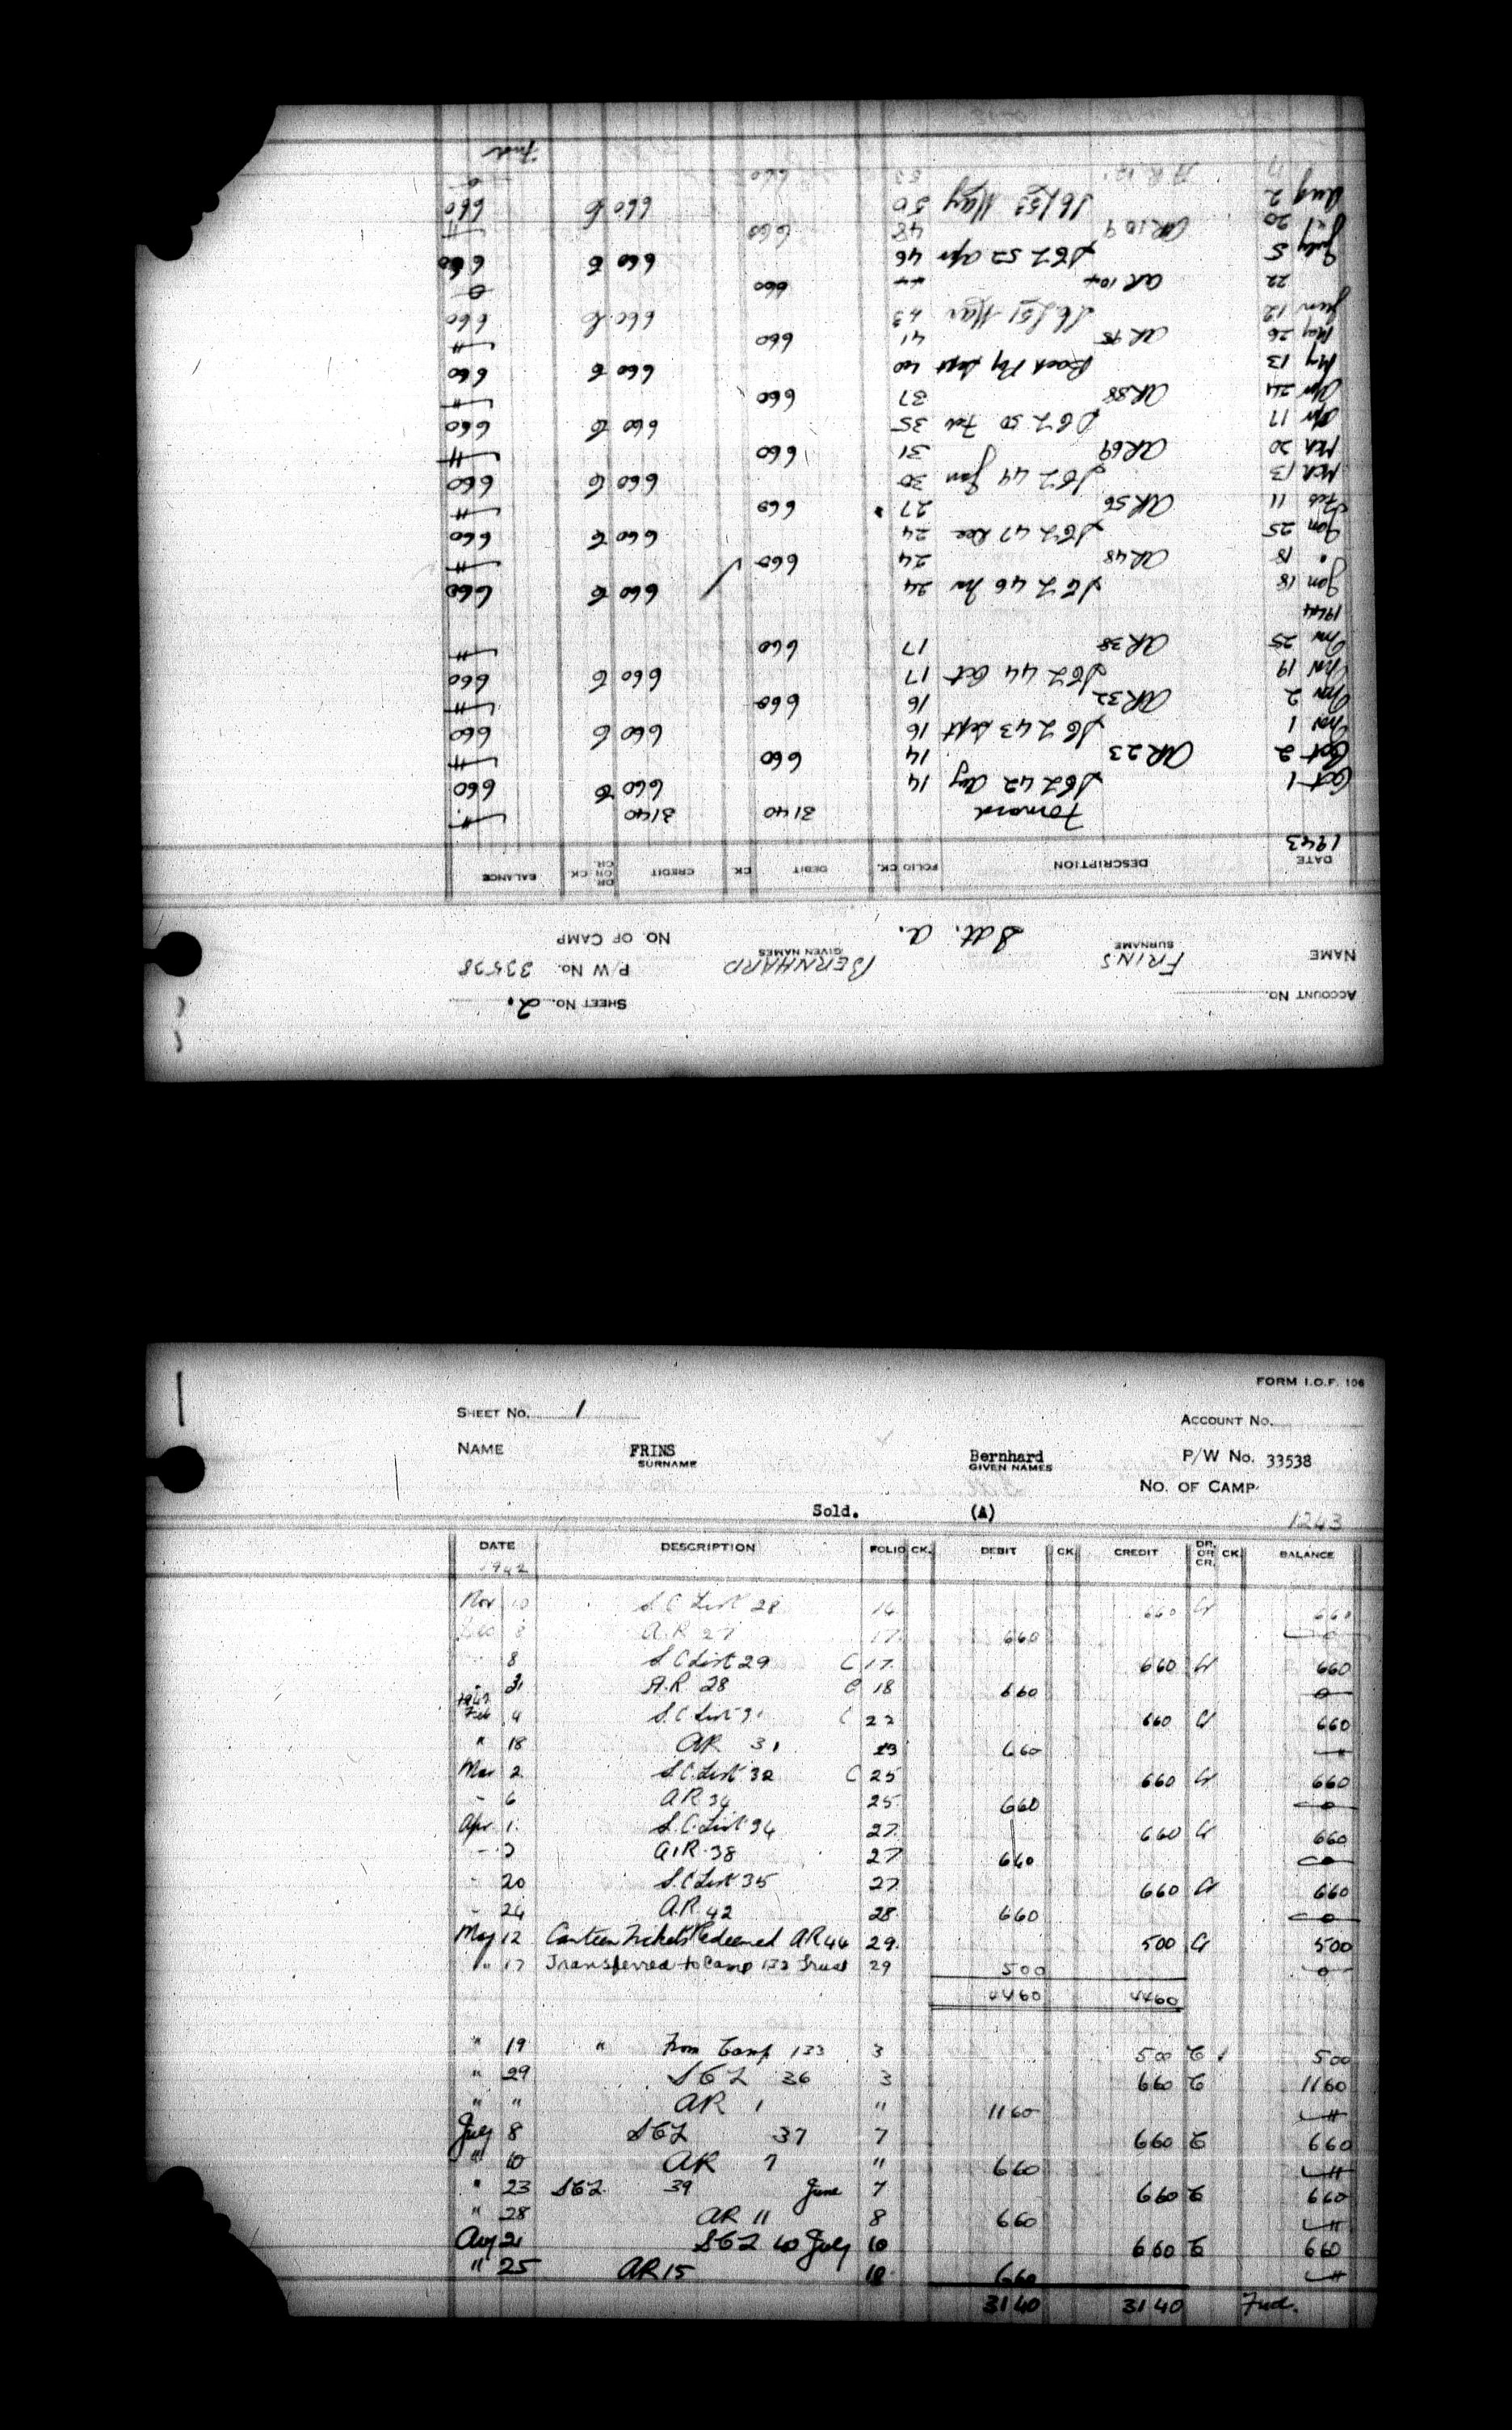 1943
DATE DESCRIPTION FOLIO CK. DEBIT CK. CREDIT DR. OR CR. CK. BALANCE
ACCOUNT No. SHEET No. 2.
NAME FRINS BERNHARD P/W No. 33538
SURNAME GIVEN NAMES
Sdt. A. NO. OF CAMP
Forward 3140 3140 "
Oct 1 SCL 42 Aug 14 660 C 660
Oct 2 AR 23 14 660 "
Nov 1 SCL 43 Sept 16 660 C 660
Nov 2 AR 32 16 660 "
Nov 19 SCL 44 Oct 17 660 C 660
Nov 25 AR 38 17 660 "
1944
Jan 18 SCL 46 Nov 24 660 C 660
" 18 AR 48 24 660 "
Jan 25 SCL 47 Dec 24 660 C 660
Feb 11 AR 56 27 660 "
Mch 13 SCL 49 Jan 30 660 C 660
Mch 20 AR 69 31 660 "
Apr 17 SCL 50 Feb 35 660 C 660
Apr 24 AR 88 37 660 "
May 13 Back Pay Sept 40 660 C 660
May 26 AR 95 41 660 "
Jun 12 SCL 51 Mar 43 660 C 660
22 AR 104 44 660 0
July 5 SCL 52 Apr 46 660 C 660
July 20 AR 109 48 660 "
Aug 2 SCL 53 May 50 660 C 660
A.R. 12 53 660 0
Fwd
FORM I.O.F. 106
SHEET No. 1 ACCOUNT No.
NAME FRINS Bernhard P/W No. 33538
SURNAME GIVEN NAMES
NO. OF CAMP
Sold. (A) 1243
DATE DESCRIPTION FOLIO CK. DEBIT CK. CREDIT DR. OR CR. CK. BALANCE
1942
Nov 10 S.C. List 28 14 660 Cr 660
Dec 8 A.R. 27 17 660 0
8 S.C. List 29 C 17 660 Cr 660
A.R. 28 C 18 660 0
1943
Feb 4 S.C. List 31 C 22 660 Cr 660
" 18 AR 31 23 660 "
Mar 2 S.C. List 32 C 25 660 Cr 660
- 6 A.R 34 25 660 0
Apr 1 S.C. List 34 27 660 Cr 660
- 2 A.R. 38 27 660 0
- 20 S.C List 35 27 660 Cr 660
- 24 A.R. 42 28 660 0
May 12 Canteen Tickets Redeemed AR 44 29 500 Cr 500
" 17 Transferred to Camp 133 Trust 29 500 0
4460 4460
" 19 " From Camp 133 3 500 C 500
" 29 SCL 36 3 660 C 1160
" " AR 1 " 1160 "
July 8 SCL 37 7 660 C 660
" 10 AR 7 " 660 "
" 23 SCL 39 June 7 660 C 660
" 28 AR 11 8 660 "
Aug 21 SCL 40 July 10 660 C 660
" 25 AR 15 10 660 "
3140 3140 Fwd.